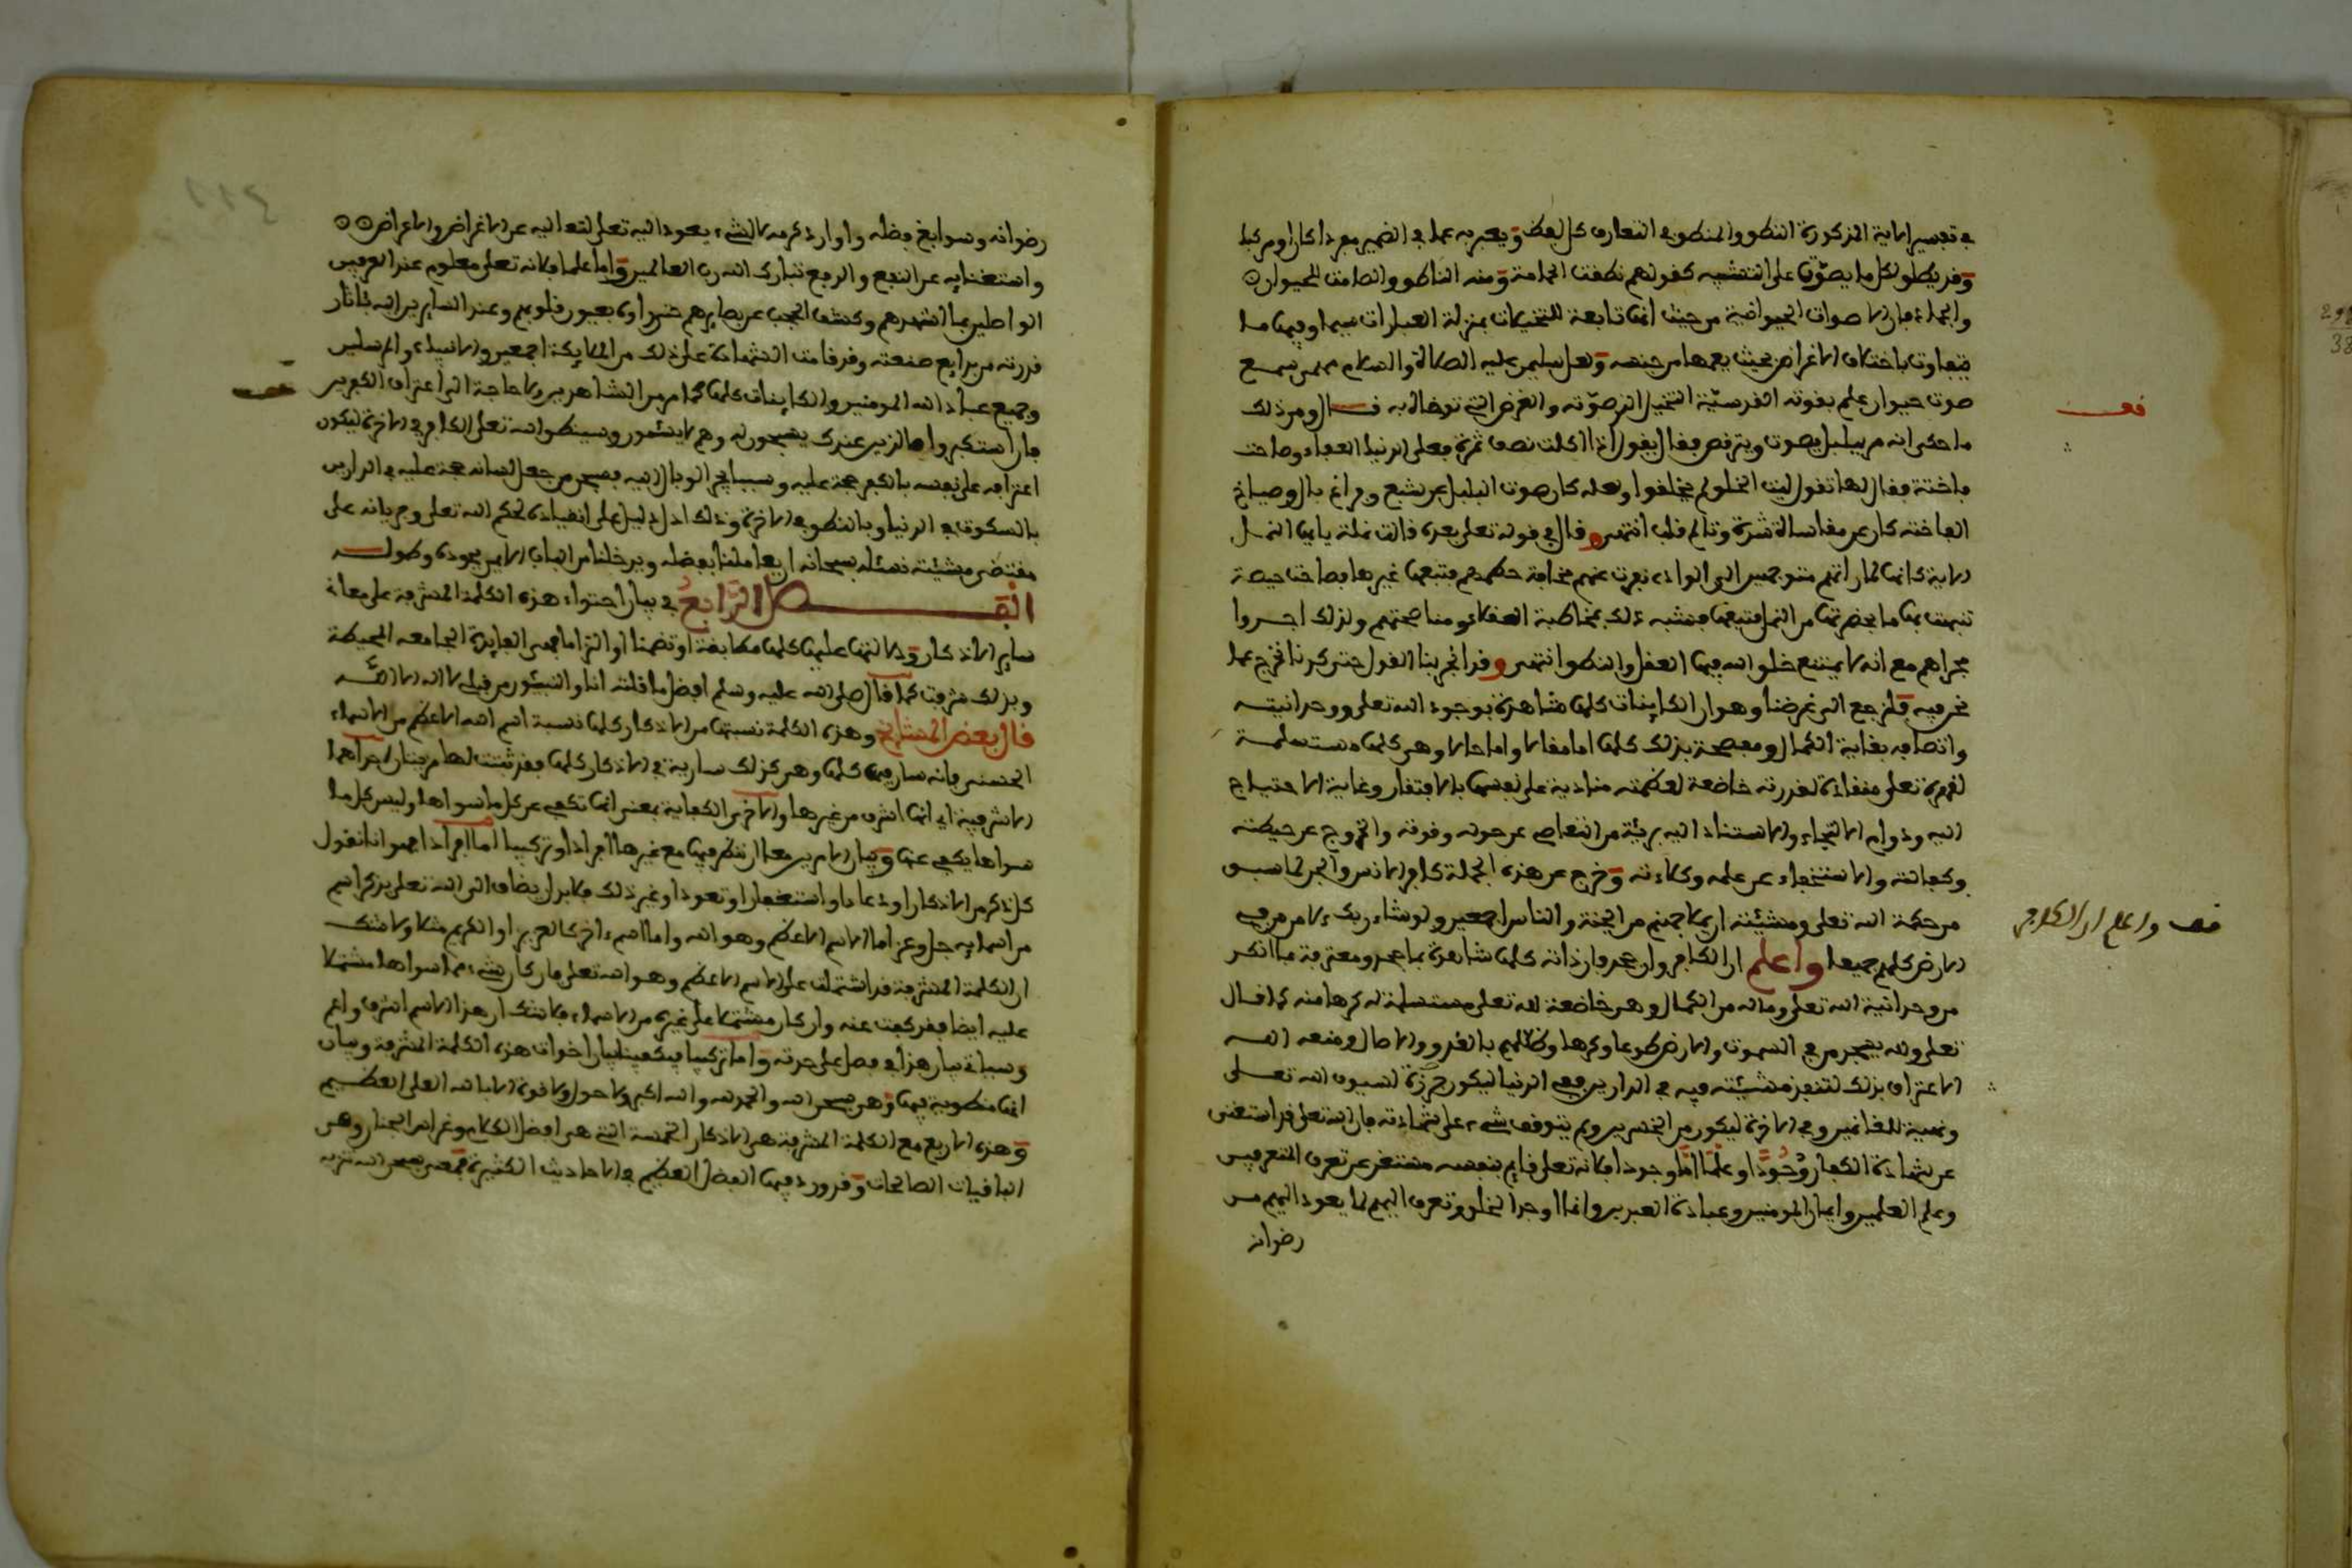 في تفسير الاية المذكورة النطق والمنطق في التعارف كل لفظ ويعبر به عما في الضمير مفردا كان او مركبا
وقد يطلق لكل ما يصوّت على التشبيه كقولهم نطقت الحمامة ومنه الناطق والصامت للحيوان
والجماد فإن الاصوات الحيوانية من حيث انها تابعة للتخيلات بمنزلة العبارات سيما وفيها ما
يتفاوت باختلاف الاغراض بحيث يفهمها من جنسه ولعل سليمن عليه الصلاة والسلام مهمى سمع
صوت حيوان علم بقوته القدسيّة التخيل الذي صوّته والغرض الذي توخاه به قال ومن ذلك
قف
ما حكي انه مر ببلبل يصوت ويترقص فقال يقول اذا اكلت نصف تمرة فعلى الدنيا العفاء وصاحت
فاختة فقال انها تقول ليت الخلق لم يخلقوا ولعله كان صوت البلبل عن شبع وفراغ بال وصياح
الفاخته كان عن مقاساة شدة وتالم قلب انتهى وقال في قوله تعلى بعده قالت نملة يايها النمل
الاية كانها لما راتهم متوجهين الى الوادي فرت عنهم مخافة حطمهم فتبعها غيرها فصاحت صيحة
تنبهت بها ما بحضرتها من النمل فتبعتها فشبه ذلك بمخاطبة العقلاء ومناصحتهم ولذلك اجروا
مجراهم مع انه لا يمتنع خلق الله فيها العقل والنطق انتهى وقد انجر بنا القول حتى كدنا نخرج عما
نحن فيه فلنرجع الى غرضنا وهو ان الكاينات كلها شاهدة بوجود الله تعلى ووحدانيته
واتصافه بغاية الكمال ومفصحة بذلك كلها اما مقالا واما حالا وهي كلها مستسلمة
لقهره تعلى منقادة لقدرته خاضعة لعظمته منادية على نفسها بالافتقار وغاية الاحتياج
اليه ودوام الالتجاء والاستناد اليه بريئة من التعاصي عن حوله وقوته والخروج عن حيطته
وكفالته والاستخفاء عن علمه وكلاءته وخرج عن هذه الجملة كافر الانس والجن لما سبق
من حكمة الله تعلى ومشيئته ان يملا جهنم من الجنة والناس اجمعين ولو شاء ربك لامن من في
الارض كلهم جميعا واعلم ان الكافر وان جحد فان ذاته كلها شاهدة بما جحد ومعترفة بما انكر
قف واعلم ان الكافر
من وحدانية الله تعلى وماله من الكمال وهي خاضعة لله تعلى مستسلمة له كرها منه كما قال
تعلى ولله يسجد من في السموت والارض طوعا وكرها وظلالهم بالغدو والاصال ومنعه الله
الاعتراف بذلك لتنفذ مشيئته فيه في الدارين ففي الدنيا ليكون جزرة لسيوف الله تعلى
وغنيمة للغانمين وفي الاخرة ليكون من الخسرين ولم يتوقف شيء على شهادته فان الله تعلى قد استغنى
عن شهادة الكفار وُجُودًا وعلمًا امّا وجودا فلانه تعلى قايم بنفسه مستغن عن تعرف المتعرفين
وعلم العلمين وايمان المومنين وعبادة العبدين وانما اوجد الخلق وتعرف اليهم لما يعود اليهم من
رضوانه
رضوانه وسوابغ فضله واوارد كرمه لا لشيء يعود اليه تعلى لتعاليه عن الاغراض والاعراض
واستغنايه عن النفع والدفع تبارك الله رب العالمين واما علما فلانه تعلى معلوم عند العرفين
الواصلين بما اشهدهم وكشف الحجب عن بصايرهم حتى راوه بعيون قلوبهم وعند السايرين اليه بآثار
قدرته من بدايع صنعته وقد قامت الشهادة على ذلك من الملايكة اجمعين والانبياء والمرسلين
وجميع عباد الله المومنين والكاينات كلها كما مر من الشاهدين ولا حاجة الى اعتراف الكفرين
قف
فان استكبروا فالذين عند ربك يسبحون له وهم لا يسئمون وسينطق الله تعلى الكافر في الاخرة ليكون
اعترافه على نفسه بالكفر حجة عليه وسببا يجر الوبال اليه فسبحن من جعل لسانه حجة عليه في الدارين
بالسكوت في الدنيا وبالنطق في الاخرة وذلك ادل دليل على انقياده لحكم الله تعلى وجريانه على
مقتضى مشيئته نسئله سبحانه ان يعاملنا بفضله ويدخلنا من الباب الايمن بجوده وطوله
الفصل الرّابعُ في بيان احتواء هذه الكلمة المشرفة على معاني
ساير الاذكار ودلالتها عليها كلها مطابقة او تضمنا او التزاما فهي الفايدة الجامعه المحيطة
وبذلك شرفت كما قال صلى الله عليه وسلم افضل ما قلته انا والنبيئون من قبلي لا اله الا الله
قال بعض المشايخ وهذه الكلمة نسبتها من الاذكار كلها نسبة اسم الله الاعظم من الاسماء
الحسنى فانه سار فيها كلها وهي كذلك سارية في الاذكار كلها فقد ثبتت لها مزيتان احداهما
الاشرفية اي انها اشرف من غيرها والاخرى الكفاية بمعنى انها تكفي عن كل ما سواها وليس كل ما
سواها يكفي عنها وبيان الامرين معا ان ننظر فيها مع غيرها افرادا وتركيبا اما افرادا فهو انا نقول
كل ذكر من الاذكار او دعاء او استغفار او تعوذ او غير ذلك فلا بد ان يضاف الى الله تعلى بذكر اسم
من اسمايه جل وعز اما الاسم الاعظم وهو الله واما اسم ءاخر كالعزيز او الكريم مثلا ولا شك
ان الكلمة المشرفة قد اشتملت على الاسم الاعظم وهو الله تعلى فان كان شيء مما سواها مشتملا
عليه ايضا فقد كفت عنه وان كان مشتملا على غيره من الاسماء فلا شك ان هذا الاسم اشرف واعم
وسياتي بيان هذا في فصل على حدته واما تركيبا فيكفينا بيان اخوات هذه الكلمة المشرفة وبيان
انها منطوية فيها وهي سبحن الله والحمد لله والله اكبر ولا حول ولا قوة الا بالله العلي العظيم
وهذه الاربع مع الكلمة المشرفة هي الاذكار الخمسة التي هي افضل الكلام وغراس الجنان وهي
الباقيات الصالحات وقد ورد فيها الفضل العظيم في الاحاديث الكثيرة فمعنى سبحن الله تنزيه